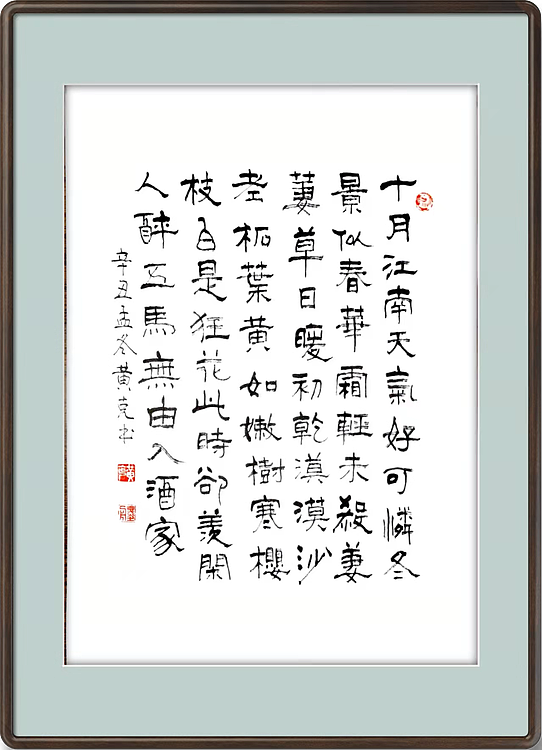 十月江南天氣好可憐冬
景似春華霜輕未殺萋
萋草日暖初乾漠漠沙
老柘葉黃如嫩樹寒櫻
枝白是狂花此時卻羨閑
人醉五馬無由入酒家
辛丑孟冬黃克書